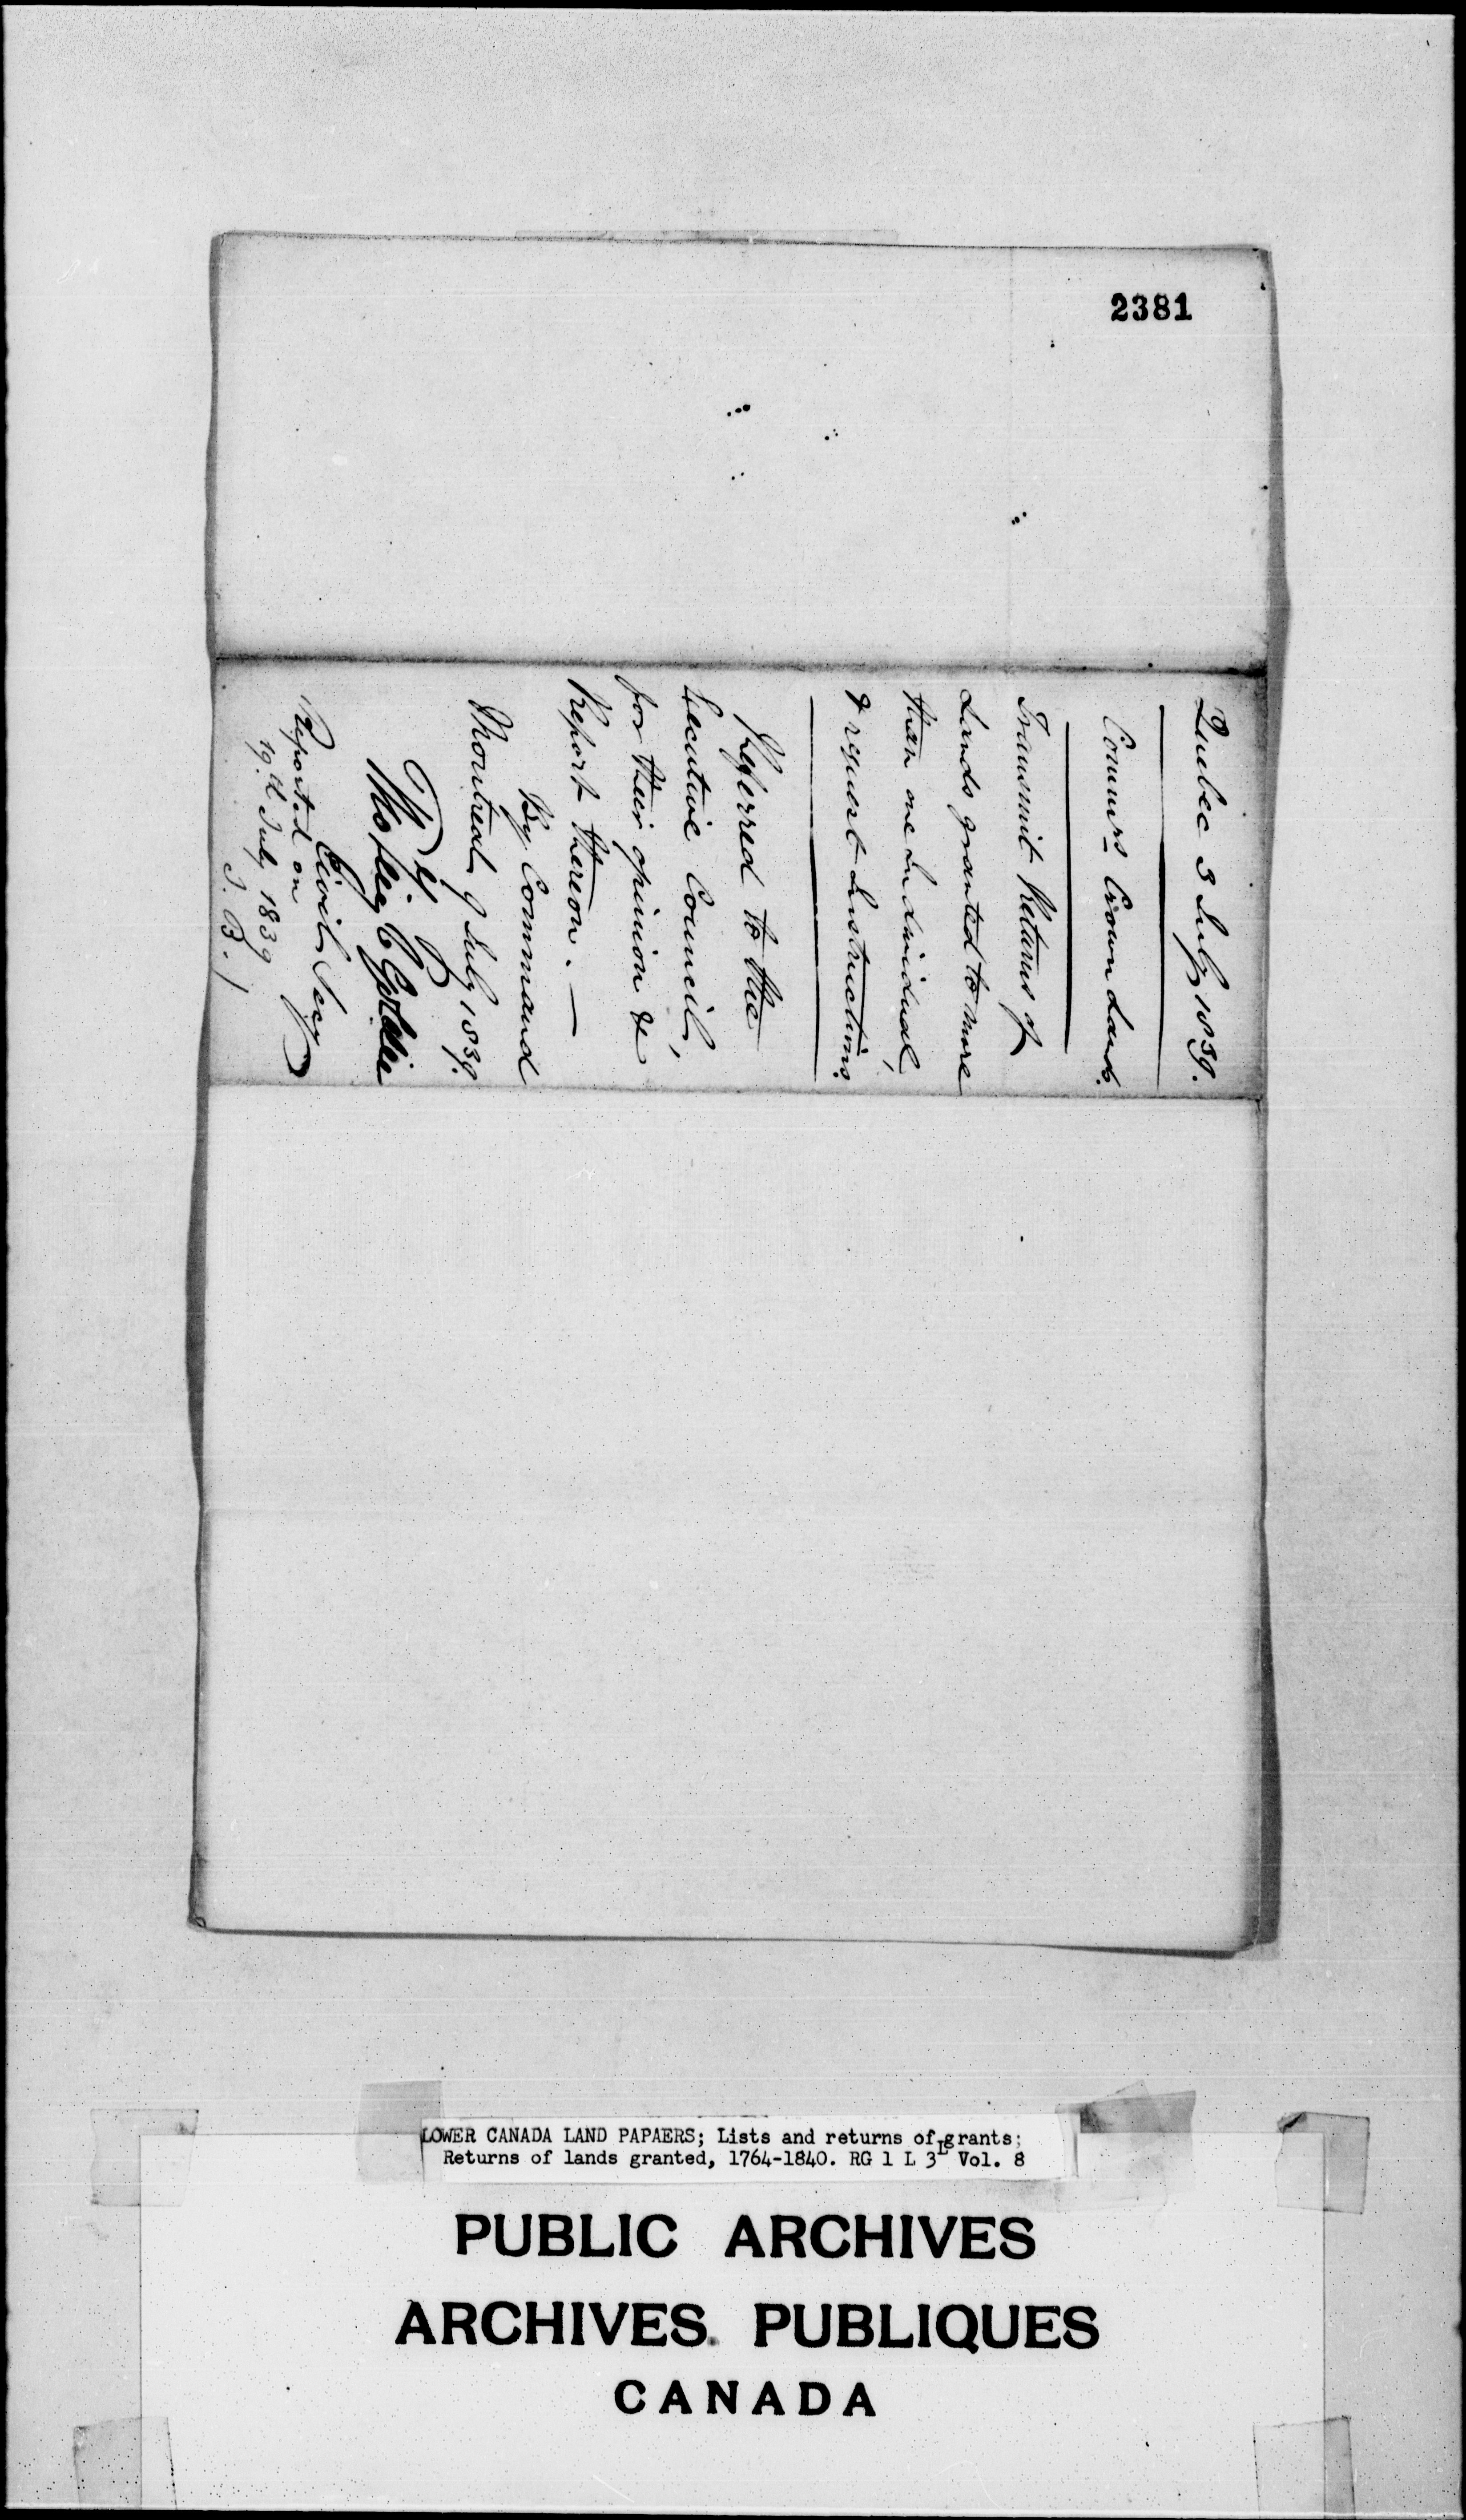 2381
Quebec 3 July 1839.
Commrs Crown Lands.
Transmit Returns of
Lands granted to more
than one Individual,
& request Instructions.
Referred to the
Executive Council,
for their opinion &
Report thereon. —
By Command
Montreal 9 July 1839.
Civil Secy
Reported on
19th July 1839
LOWER CANADA LAND PAPAERS; Lists and returns of grants;
Returns of lands granted, 1764-1840. RG 1 L 3L Vol. 8
PUBLIC ARCHIVES
ARCHIVES PUBLIQUES
CANADA